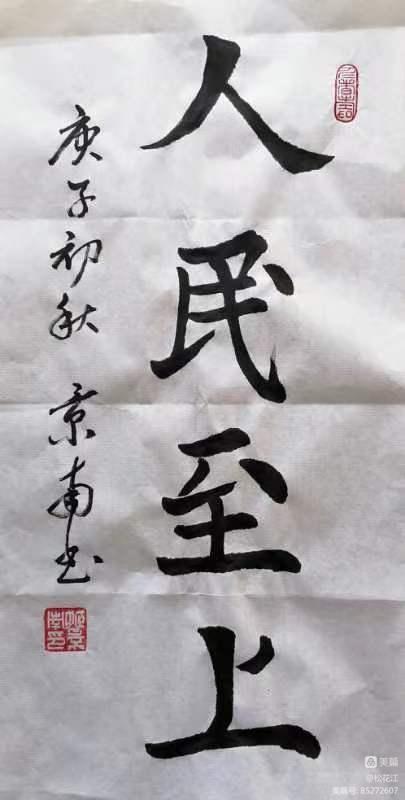 人民至上
庚子初秋 景南书
美篇
@松花江
美篇号: 85272607